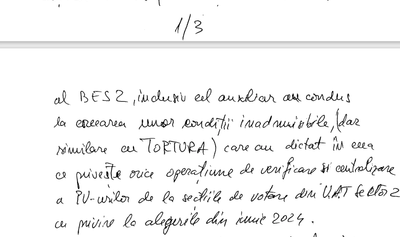 1/3
al BES2, inclusiv cel auxiliar au condus
la crearea unor condiții inadmisibile, (dar
similare cu TORTURA) care au dictat în ceea
ce privește orice operațiune de verificare și centralizare
a PV-urilor de la secțiile de votare din UAT Sector 2
cu privire la alegerile din iunie 2024.